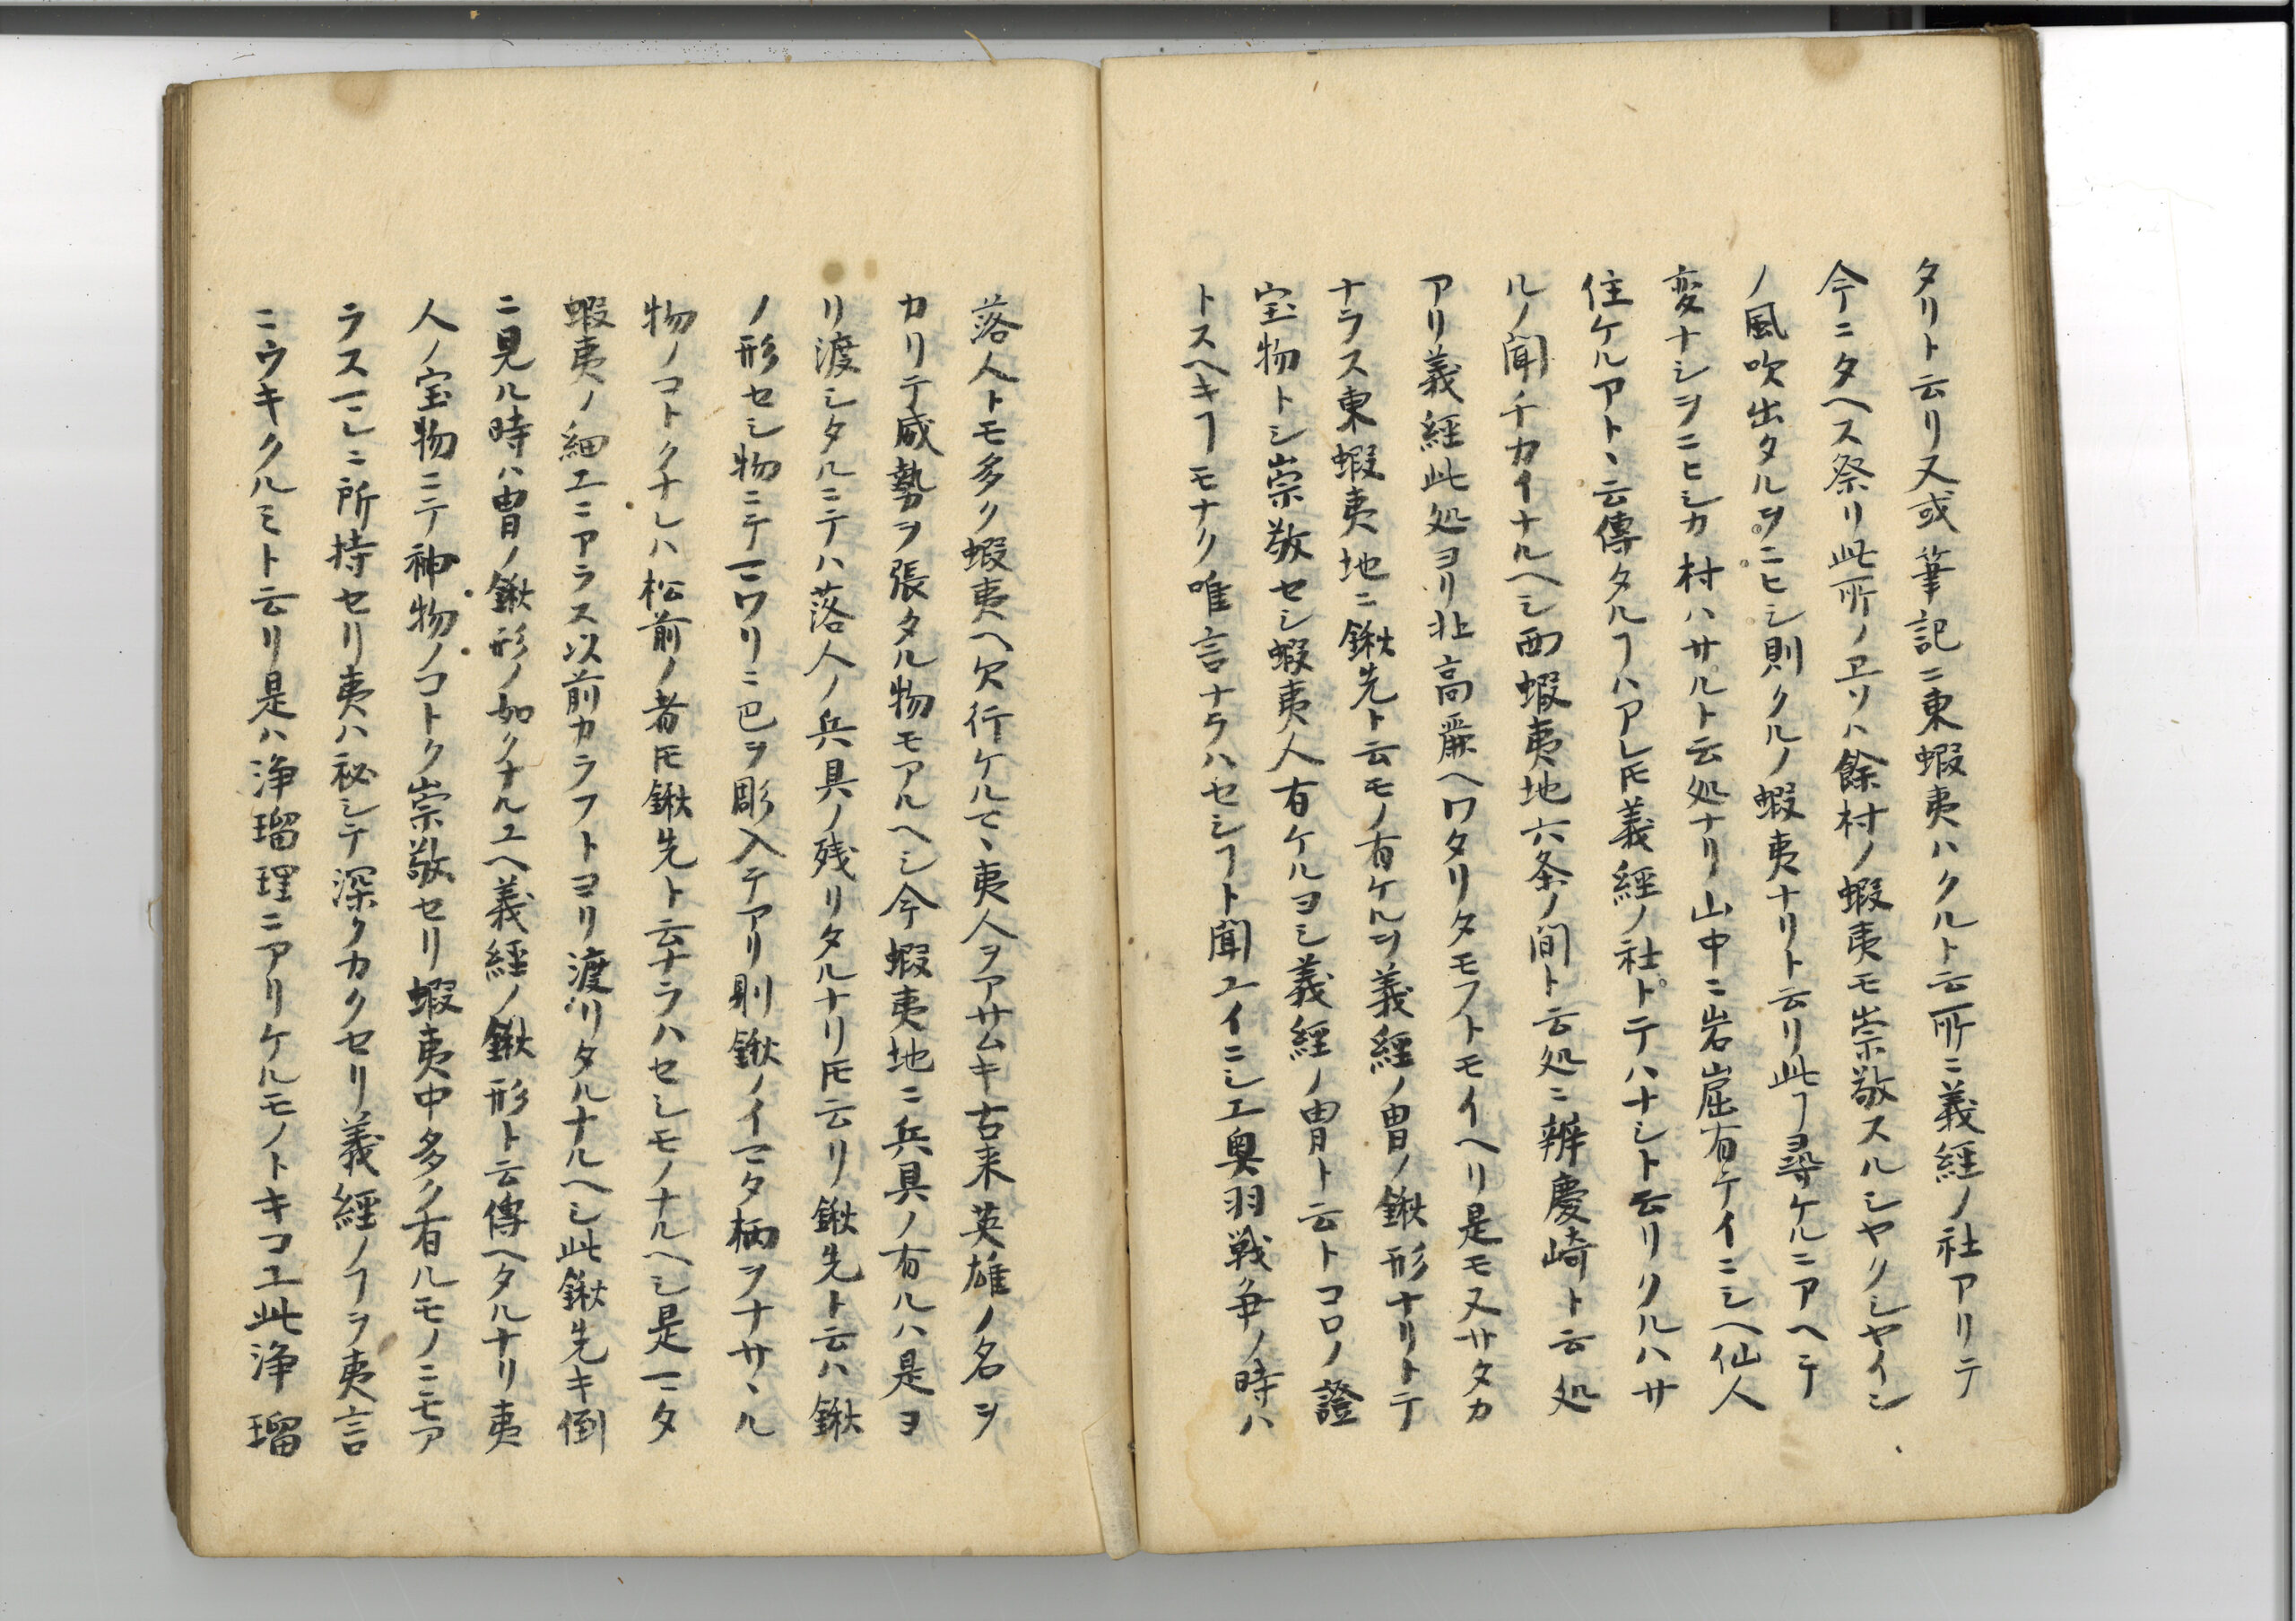 タリト云リ又或筆記ニ東蝦夷ハクルト云所ニ義経ノ社アリテ
今ニタヘス祭リ此所ノヱソハ餘村ノ蝦夷モ崇敬スルシヤクシヤイン
ノ風吹出タルヲニヒシ則クルノ蝦夷ナリト云リ此ヿ尋ケルニアヘテ
変ナシヲニヒシカ村ハサルト云処ナリ山中ニ岩屈有テイニシヘ仙人
住ケルアトヽ云傳タルヿハアレ𪜈義経ノ社トテハナシト云リクルハサ
ルノ聞チカイナルヘシ西蝦夷地六条ノ間ト云処ニ辨慶崎ト云処
アリ義経此処ヨリ北高麗ヘワタリタモフトモイヘリ是モ又サタカ
ナラス東蝦夷地ニ鍬先ト云モノ有ケルヲ義経ノ冑ノ鍬形ナリトテ
宝物トシ崇敬セシ蝦夷人有ケルヨシ義経ノ冑ト云トコロノ證
トスヘキヿモナク唯言ナラハセシヿト聞ユイニシエ奥羽戦争ノ時ハ
落人トモ多ク蝦夷ヘ欠行ケルマヽ夷人ヲアサムキ古来英雄ノ名ヲ
カリテ威勢ヲ張タル物モアルヘシ今蝦夷地ニ兵具ノ有ルハ是ヨ
リ渡シタルニテハ落人ノ兵具ノ残リタルナリ𪜈云リ鍬先ト云ハ鍬
ノ形セシ物ニテマワリニ巴ヲ彫入テアリ則鍬ノイマタ柄ヲナサヽル
物ノコトクナレハ松前ノ者𪜈鍬先ト云ナラハセシモノナルヘシ是マタ
蝦夷ノ細工ニアラス以前カラフトヨリ渡リタルナルヘシ此鍬先キ倒
ニ見ル時ハ冑ノ鍬形ノ如クナルユヘ義経ノ鍬形ト云傳ヘタルナリ夷
人ノ宝物ニテ神物ノコトク崇敬セリ蝦夷中多ク有ルモノニモア
ラスマレニ所持セリ夷ハ祕シテ深クカクセリ義経ノヿヲ夷言
ニウキクルミト云リ是ハ浄瑠理ニアリケルモノトキコユ此浄瑠